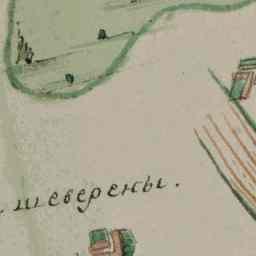 шеверены.